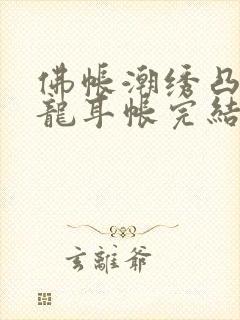 佛帳潮绣凸
龍耳帳完結
玄離爺